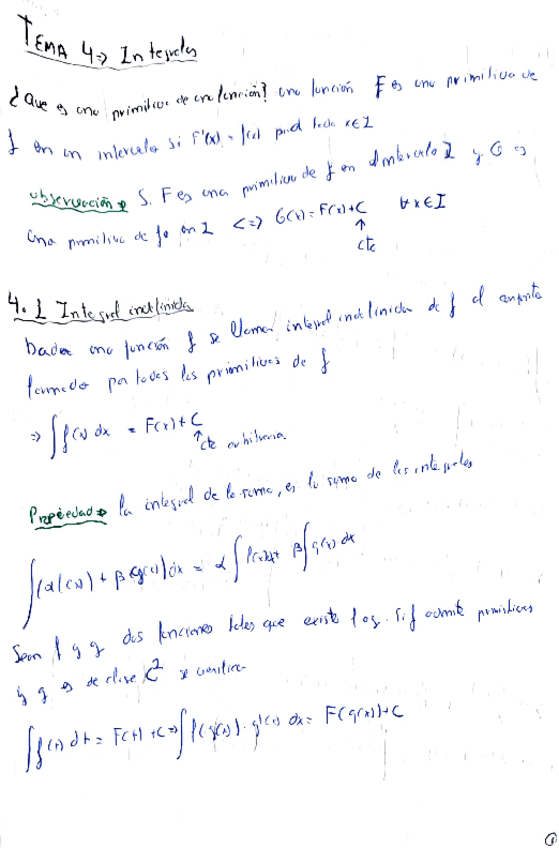 TEMA 4 => Integrales
¿Que es una primitiva de una función? una función F es una primitiva de
f en un intervalo si F'(x) = f(x) para todo x∈I
Observación → Si F es una primitiva de f en el intervalo I y G es
una primitiva de f en I <=> G(x) = F(x) + C ∀x∈I
↑
cte
4.1 Integral indefinida
Dada una función f se llama integral indefinida de f al conjunto
formado por todas las primitivas de f
=> ∫f(x) dx = F(x) + C
↑ cte arbitraria
Propiedad → La integral de la suma, es la suma de las integrales
∫(αf(x) + βg(x)) dx = α∫f(x)dx + β∫g(x) dx
Sean f y g dos funciones tales que existe f o g. Si f admite primitivas
y g es de clase C² se verifica
∫f(t) dt = F(t) + C => ∫f(g(x)) · g'(x) dx = F(g(x)) + C
1